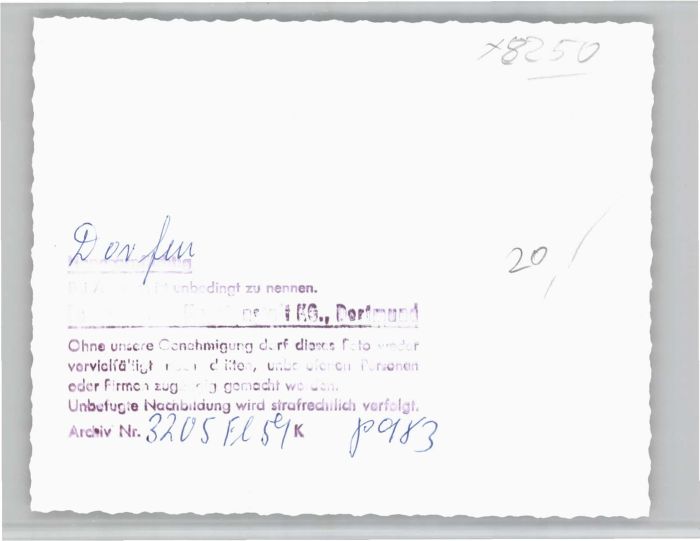 x8250
Dorfen
20/
unbedingt zu nennen.
KG., Dortmund
Ohne unsere Genehmigung darf dieses Foto weder
vervielfältigt noch dritten, unbe Personen
oder Firmen zugängig gemacht werden.
Unbefugte Nachbildung wird strafrechtlich verfolgt.
Archiv Nr. 3205 Fl 59 K p 983